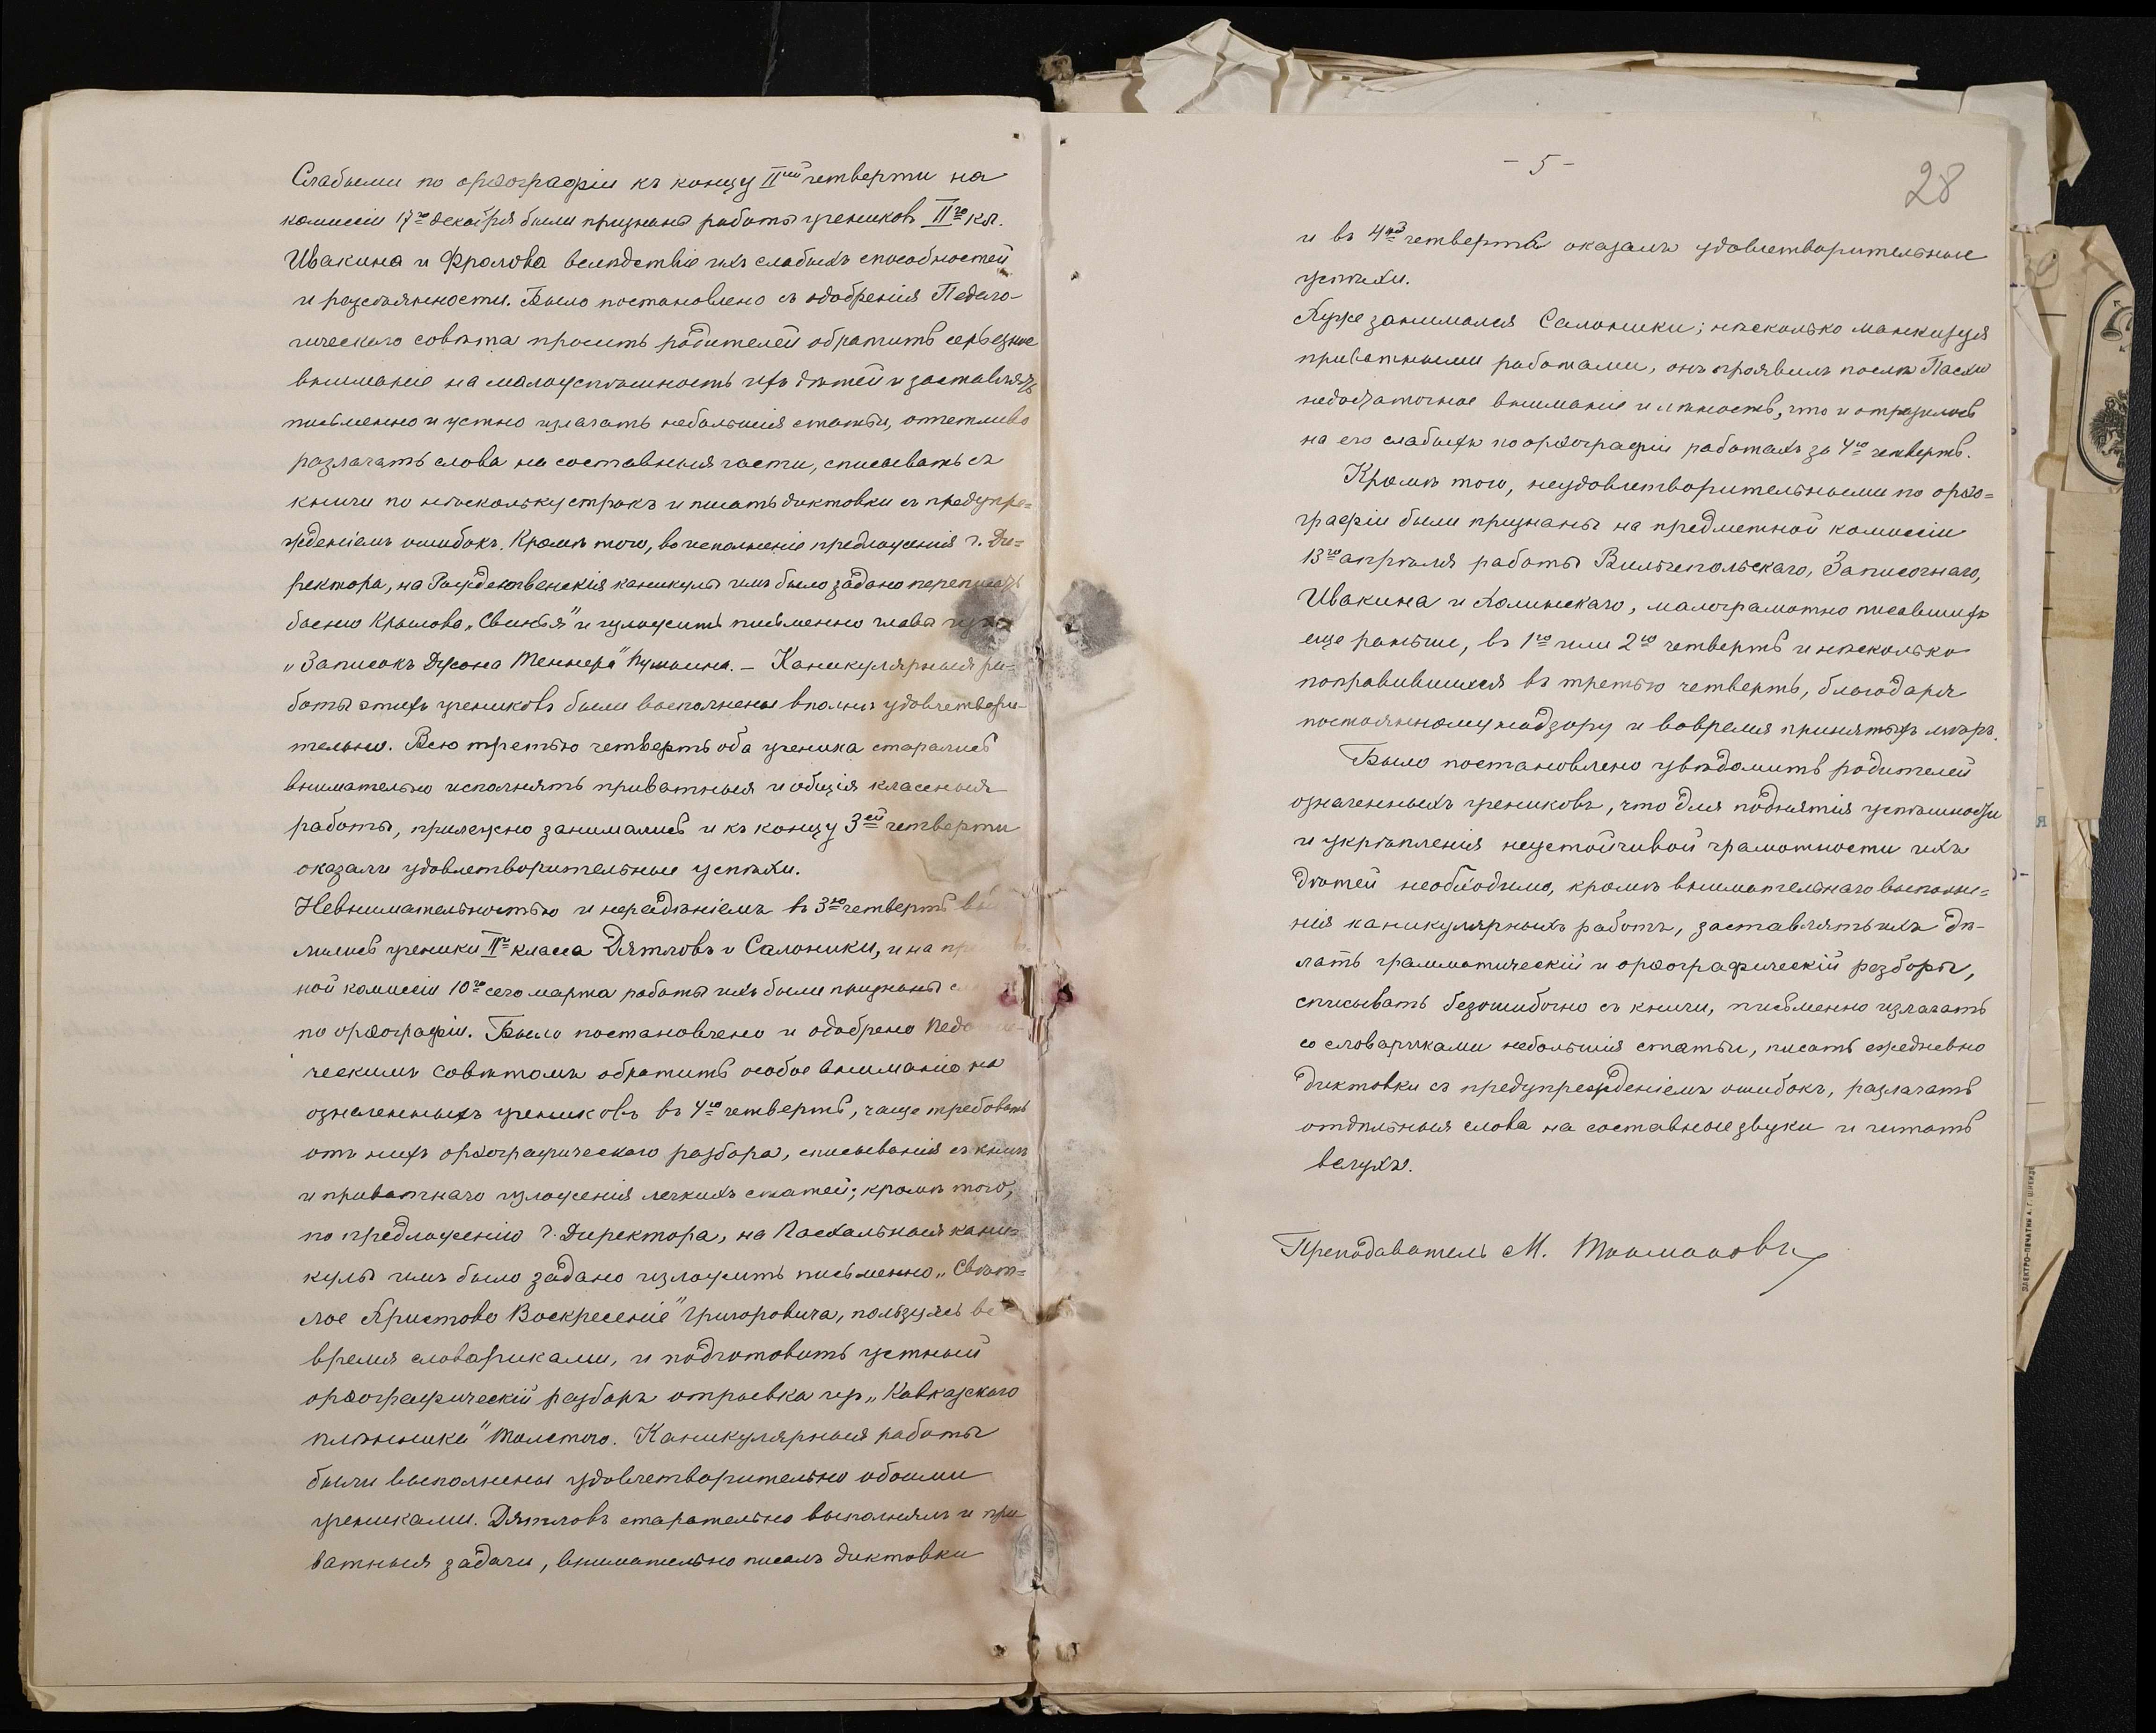 Слабыми по орѳографіи къ концу II-ой четверти на
комиссіи 17го декабря были признаны работы учениковъ IIго кл.
Ивакина и Фролова вслѣдствіе ихъ слабыхъ способностей
и разсѣянности. Было постановлено съ одобренія Педаго-
гическаго совѣта просить родителей обратить серьезное
вниманіе на малоуспѣшность ихъ дѣтей и заставлять
письменно и устно излагать небольшія статьи, отчетливо
разлагать слова на составныя части, списывать съ
книги по нѣскольку строкъ и писать диктовки съ предупре=
жденіемъ ошибокъ. Кромѣ того, во исполненіе предложенія г. Ди=
ректора, на Рождественскія каникулы имъ было задано переписать
басню Крылова „Свинья" и изложить письменно главы изъ
„Записокъ Джона Теннера" Пушкина. — Каникулярныя ра-
боты этихъ учениковъ были выполнены вполнѣ удовлетвори-
тельно. Всю третью четверть оба ученика старались
внимательно исполнять приватныя и общія классныя
работы, прилежно занимались и къ концу 3ей четверти
оказали удовлетворительные успѣхи.
Невнимательностью и нерадѣніемъ въ 3ю четверть
лились ученики IIго класса Дятловъ и Салоники, и на
ной комиссіи 10го сего марта работы ихъ были признаны
по орѳографіи. Было постановлено и одобрено Педа
ческимъ Совѣтомъ обратить особое вниманіе на
означенныхъ учениковъ въ 4ю четверть, чаще требовать
отъ нихъ орѳографическаго разбора, списыванія съ книги
и приватнаго изложенія легкихъ статей; кромѣ того,
по предложенію г. Директора, на Пасхальныя кани=
кулы имъ было задано изложить письменно „Свѣт=
лое Христово Воскресеніе" Григоровича, пользуясь все
время словариками, и подготовить устный
орѳографическій разборъ отрывка изъ „Кавказскаго
плѣнника" Толстого. Каникулярныя работы
были выполнены удовлетворительно обоими
учениками. Дятловъ старательно выполнялъ и при
ватныя задачи, внимательно писалъ диктовки
- 5 -
28
и въ 4ой четверти оказалъ удовлетворительные
успѣхи.
Хуже занимался Салоники; нѣсколько манкируя
приватными работами, онъ проявилъ послѣ Пасхи
недостаточное вниманіе и лѣность, что и отразилось
на его слабыхъ по орѳографіи работахъ за 4ю четверть.
Кромѣ того, неудовлетворительными по орѳо=
графіи были признаны на предметной комиссіи
13го апрѣля работы Вильчепольскаго, Записочнаго,
Ивакина и Холинскаго, малограмотно писавшихъ
еще раньше, въ 1ю или 2ю четверть и нѣсколько
поправившихся въ третью четверть, благодаря
постоянному надзору и вовремя принятыхъ мѣръ.
Было постановлено увѣдомить родителей
означенныхъ учениковъ, что для поднятія успѣшности
и укрѣпленія неустойчивой грамотности ихъ
дѣтей необходимо, кромѣ внимательнаго выполне=
нія каникулярныхъ работъ, заставлять ихъ дѣ-
лать грамматическій и орѳографическій разборы,
списывать безошибочно съ книги, письменно излагать
со словариками небольшія статьи, писать ежедневно
диктовки съ предупрежденіемъ ошибокъ, разлагать
отдѣльныя слова на составные звуки и читать
вслухъ.
Преподаватель М.